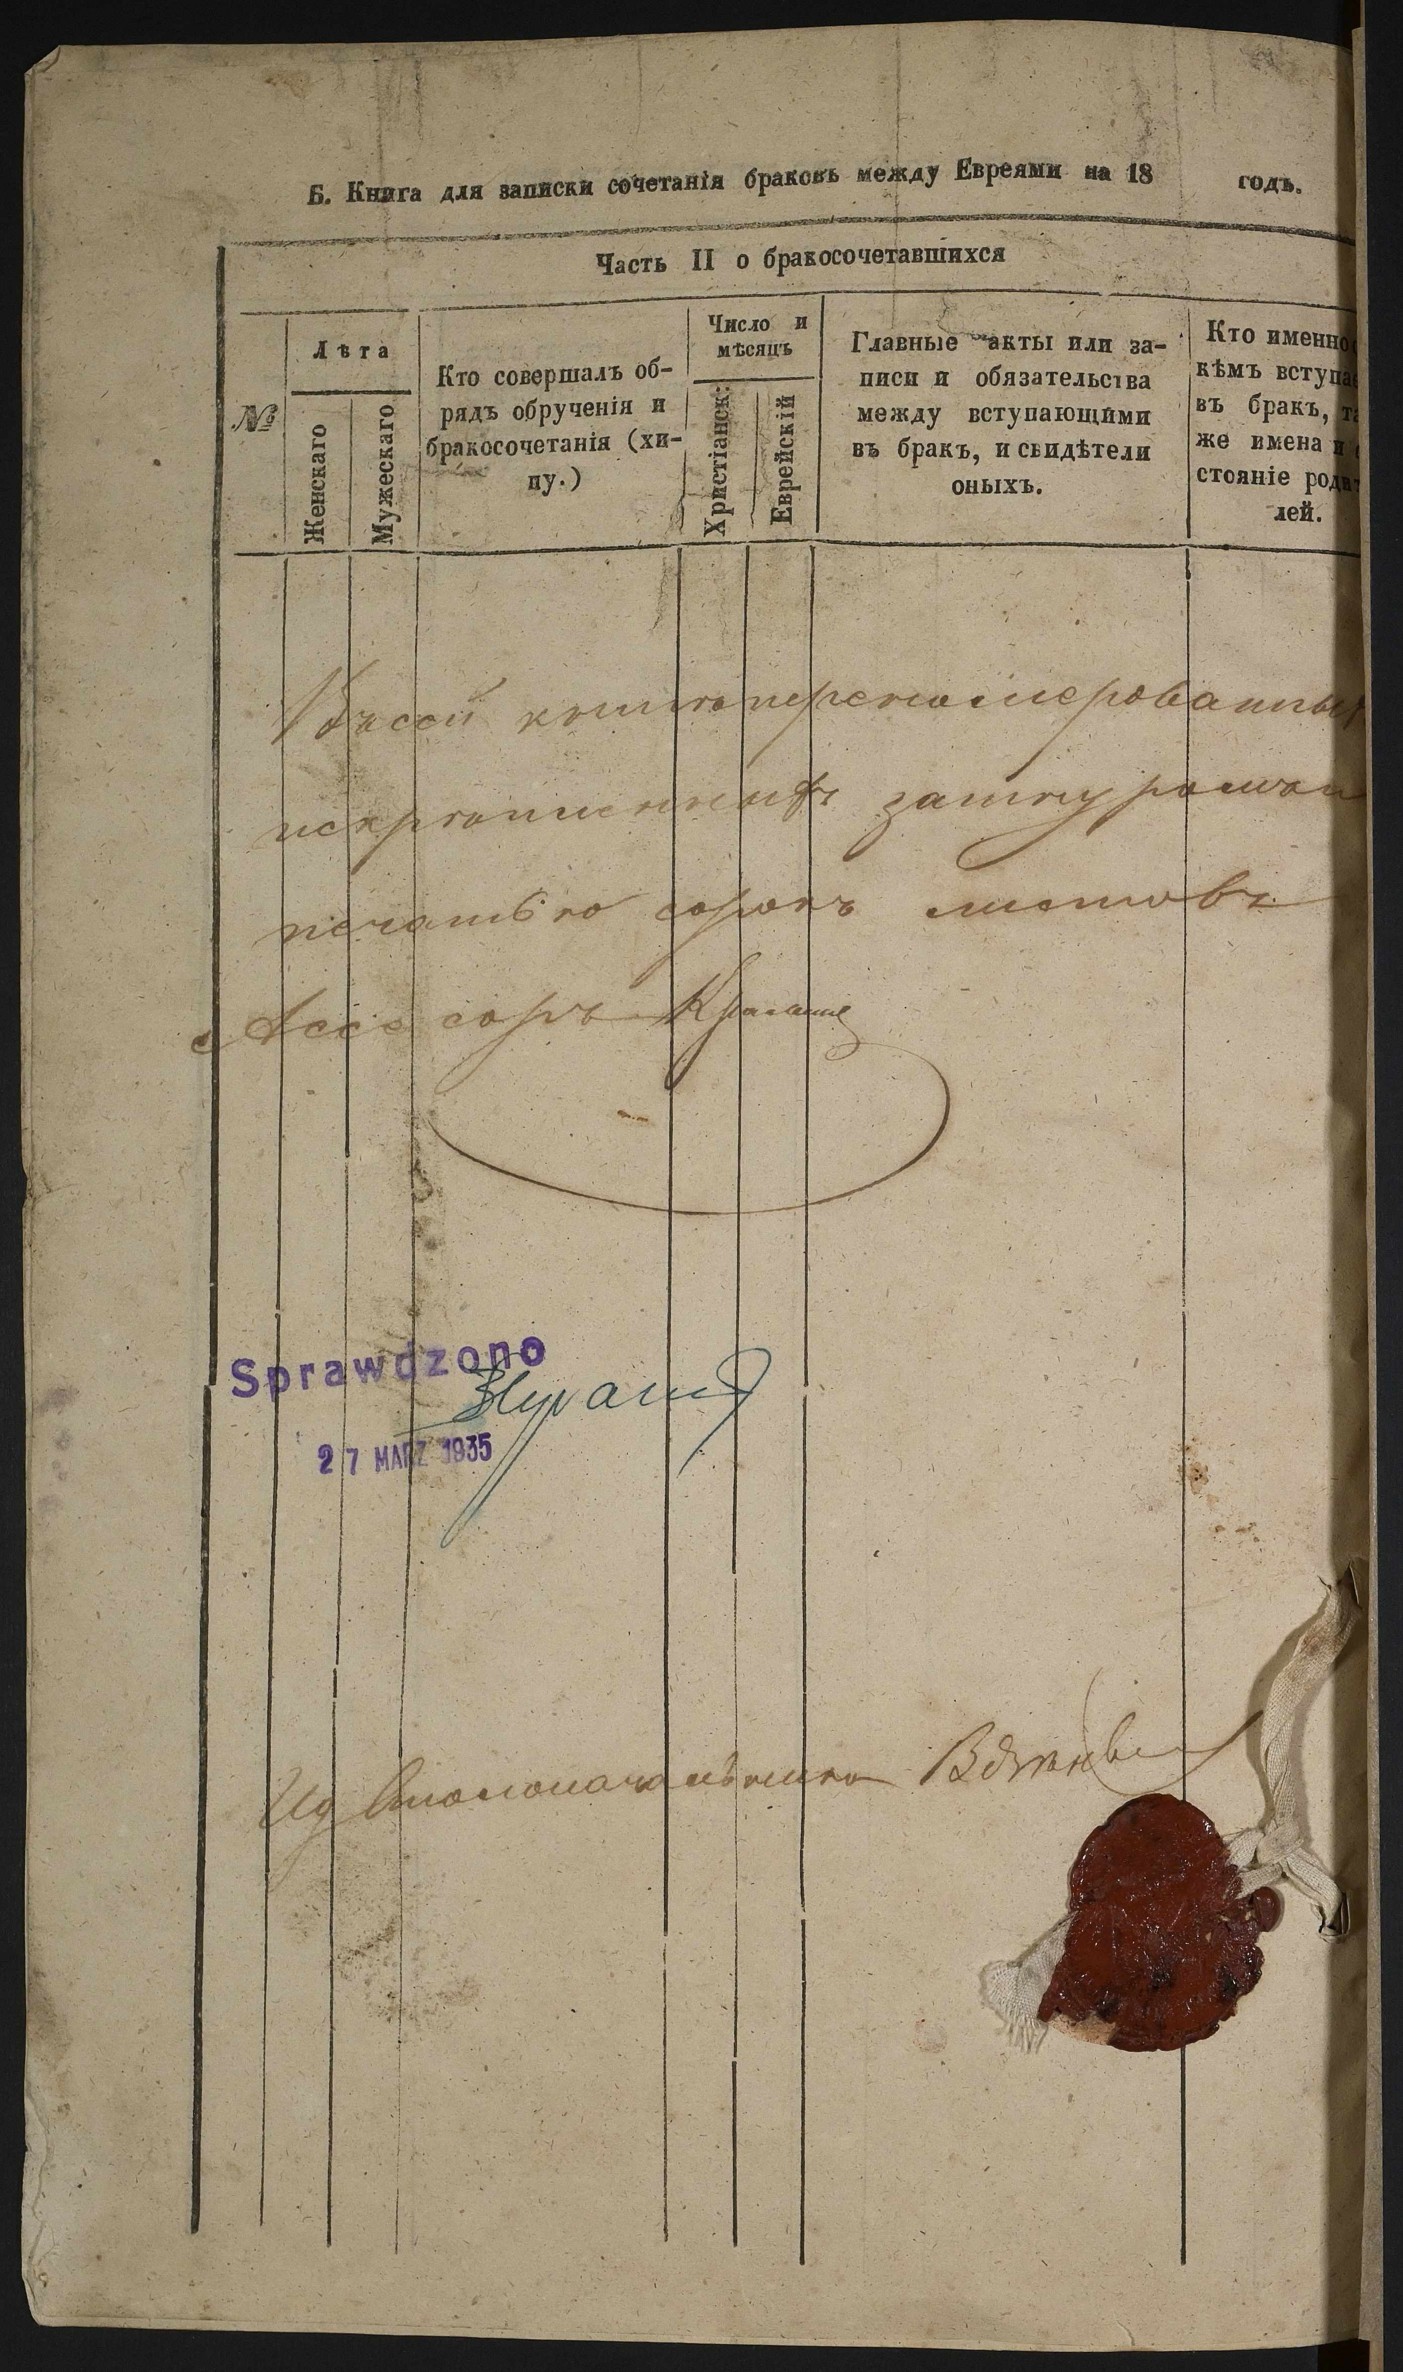 Б. Книга для записки сочетанія браковъ между Евреями на 18 годъ.
Часть II о бракосочетавшихся
№
Лѣта
Женскаго
Мужескаго
Кто совершалъ об-
рядъ обрученія и
бракосочетанія (хи-
пу.)
Число и
мѣсяцъ
Христіанск:
Еврейскій
Главные акты или за-
писи и обязательства
между вступающими
въ бракъ, и свидѣтели
оныхъ.
Кто именно
кѣмъ вступае
въ бракъ, та
же имена и
стояніе родит
лей.
Въ сей книгѣ перенумерованныхъ
и скрѣпленныхъ за шнуромъ и
печатью сорокъ листовъ
Ассесоръ
Sprawdzono
27 MARZ 1935
И д Столоначальника